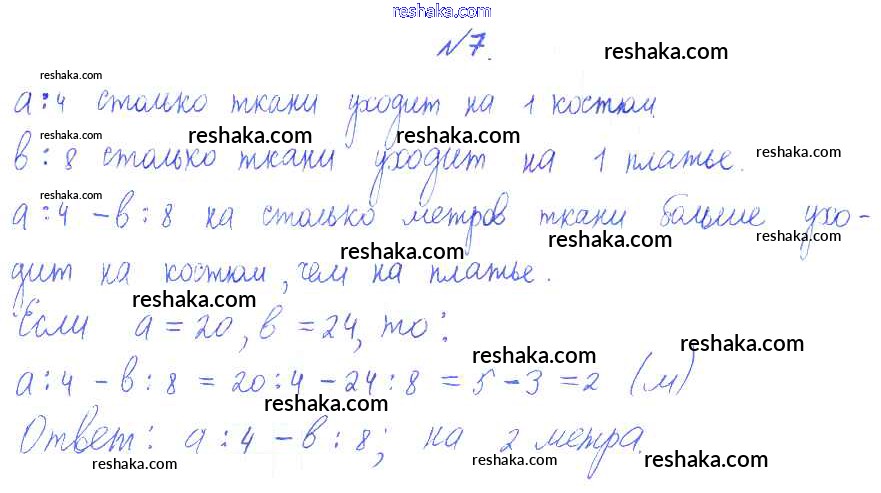 reshaka.com
№7.
reshaka.com
reshaka.com
а:4 столько ткани уходит на 1 костюм.
reshaka.com reshaka.com
в:8 столько ткани уходит на 1 платье.
reshaka.com
reshaka.com
а:4 - в:8 на столько метров ткани больше ухо-
reshaka.com reshaka.com reshaka.com
дит на костюм, чем на платье.
reshaka.com
Если а=20, в=24, то:
reshaka.com reshaka.com
а:4 - в:8 = 20:4 - 24:8 = 5 - 3 = 2 (м)
reshaka.com
Ответ: а:4 - в:8; на 2 метра.
reshaka.com reshaka.com reshaka.com